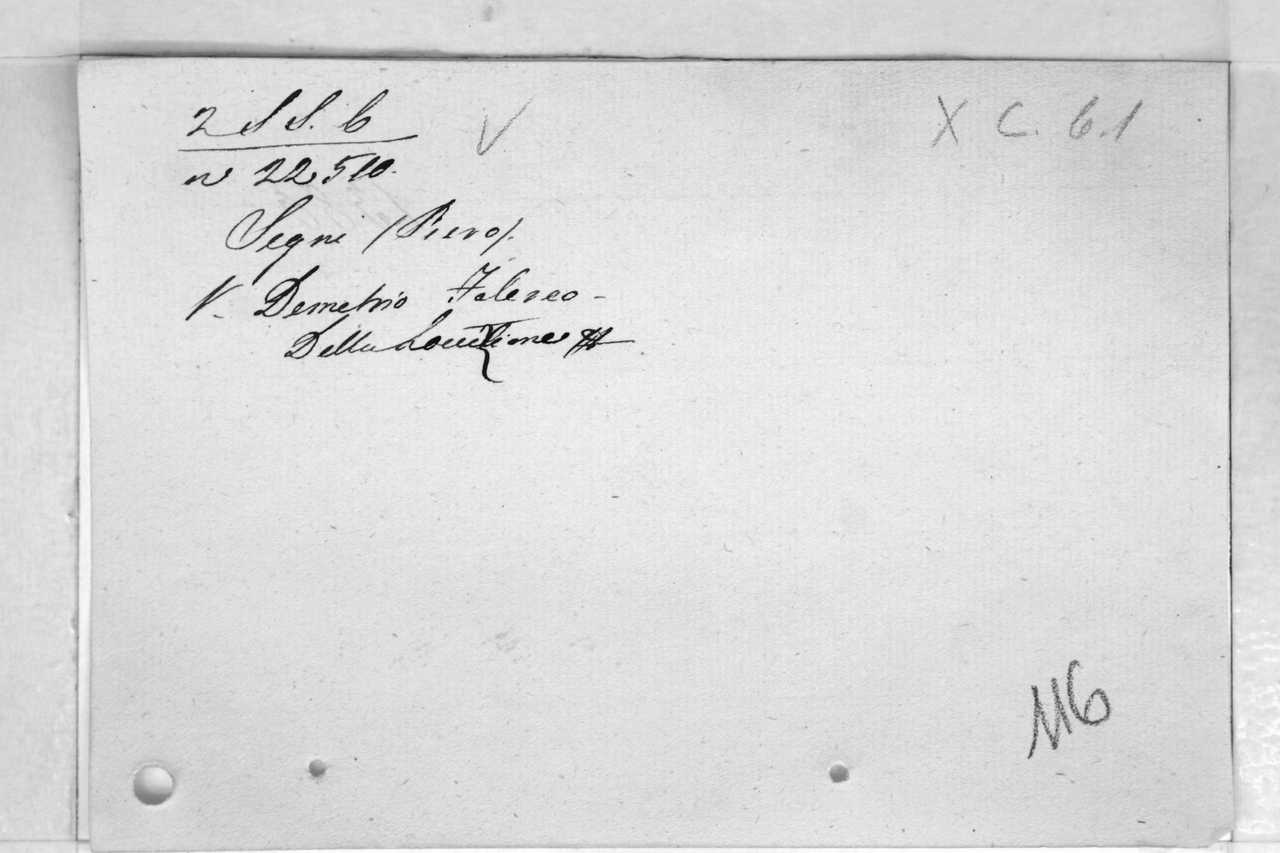 2 S S. 6
V
X C. 6.1
n 22510.
Segni (Piero).
V. Demetrio Falereo -
Della Locuzione
116